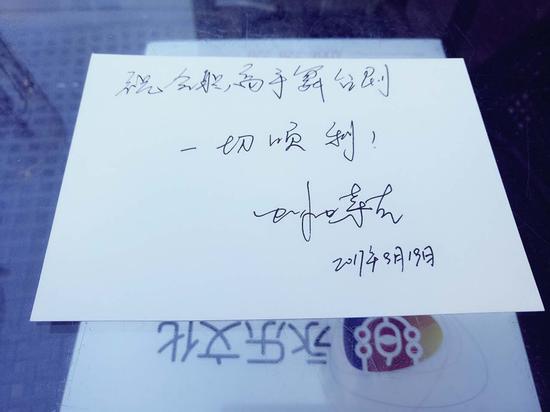 祝全职高手舞台剧
一切顺利!
2017年3月19日
永乐文化